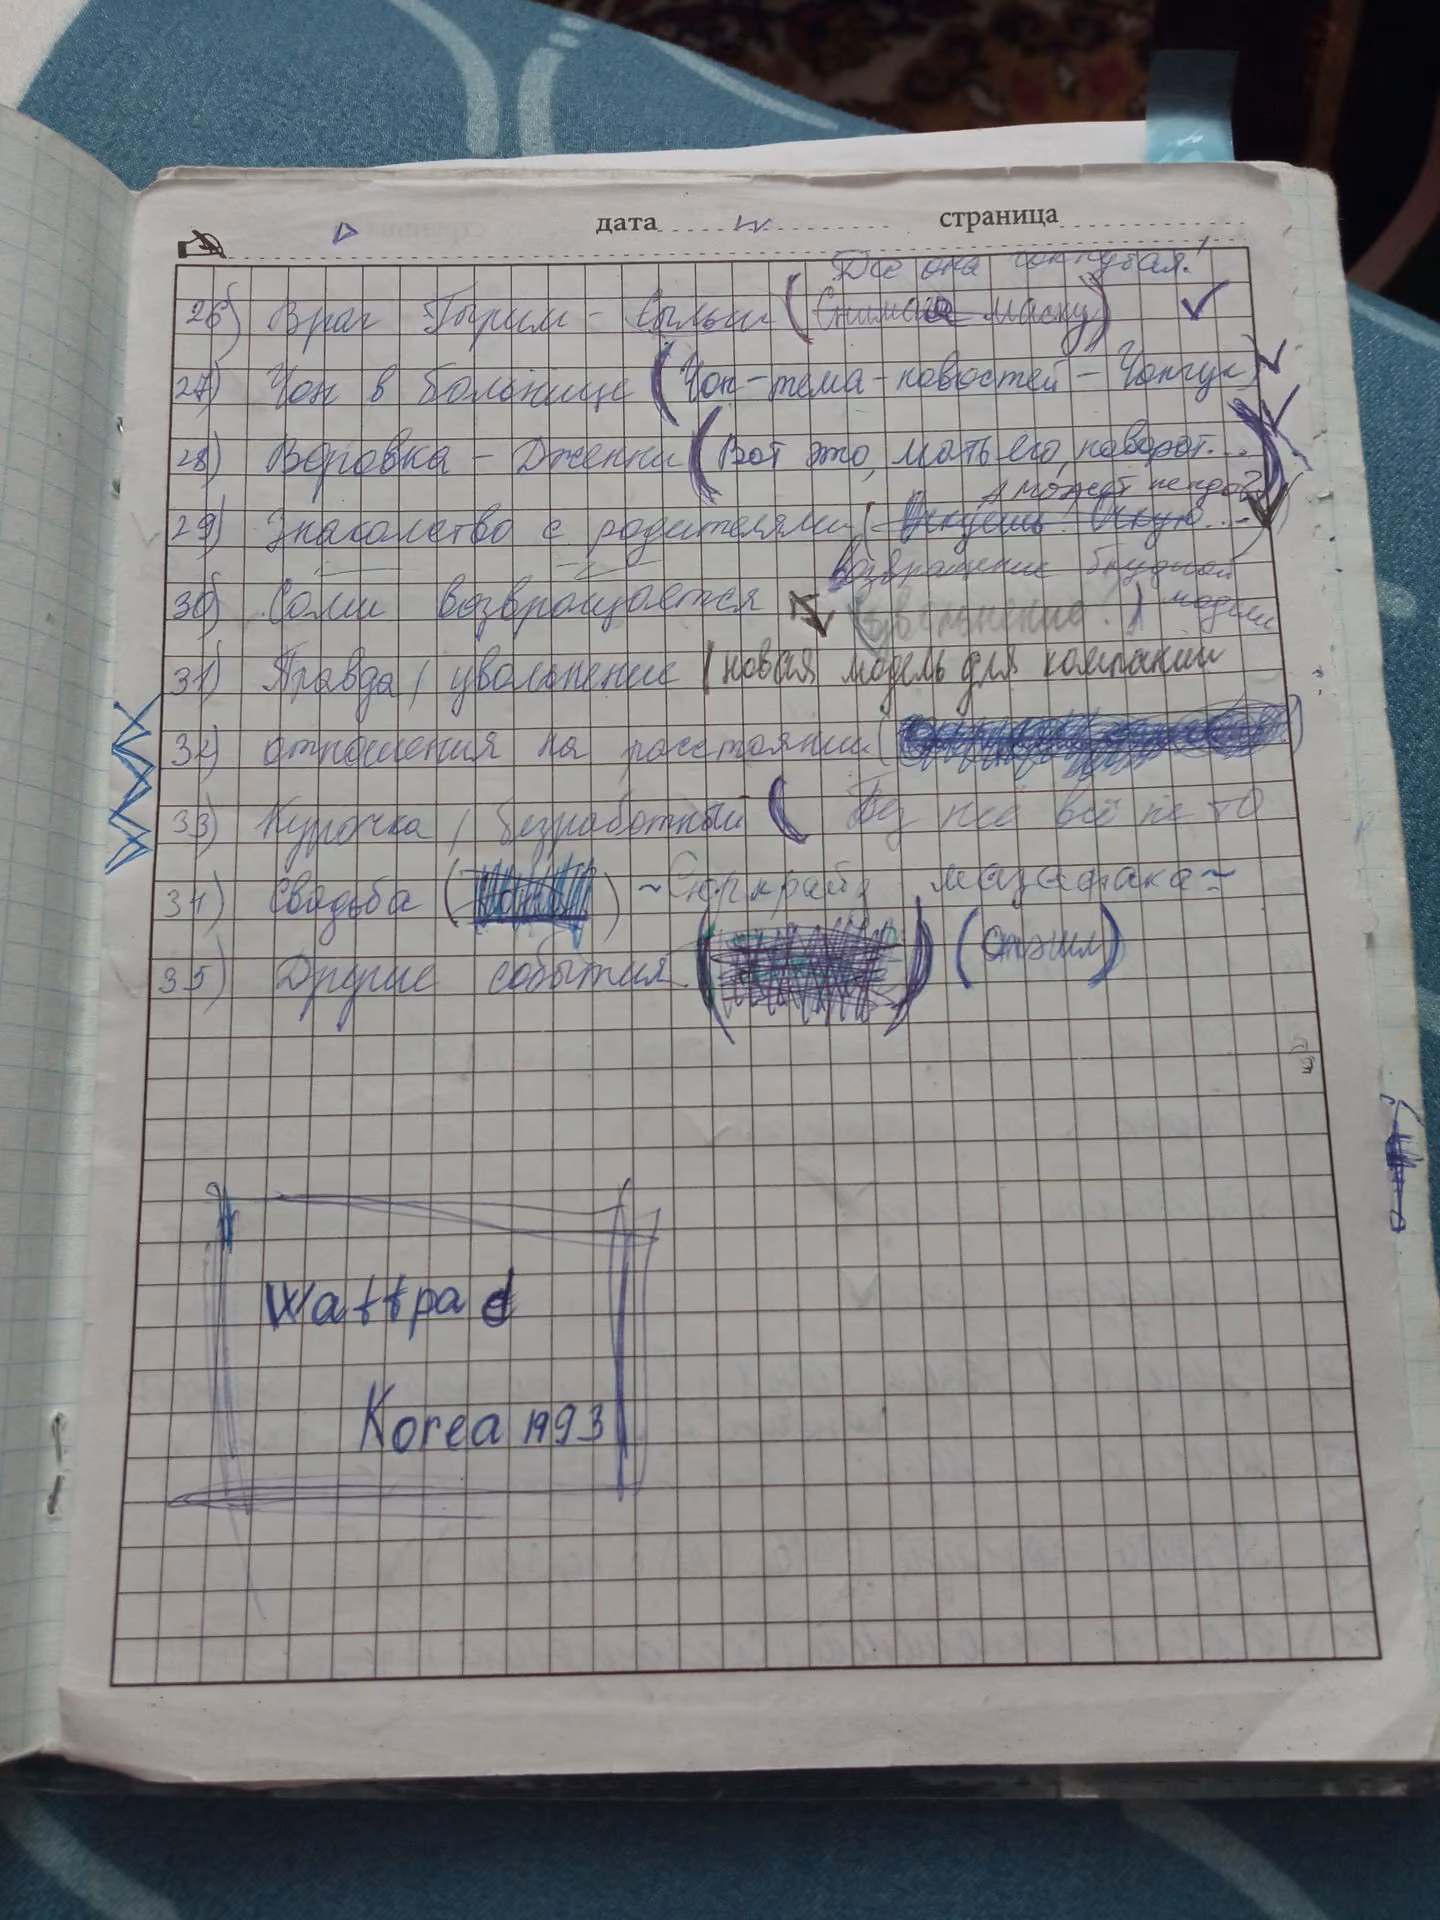 дата страница
Где она
26) Враг Тырим - Сыльги (Снимает маску)
27) Чон в больнице (Чон-тема-новостей-Чонгук)
28) Воровка - Дженни (Вот это, мать его, поворот...)
А может не надо?
29) Знакомство с родителями (Вкусишь? Вкушу...
возвращение блудной
30) Соми возвращается (увольнение!) модели
31) Правда / увольнение (новая модель для компании
32) отношения на расстоянии (
33) Курочка / безработный ( Без неё всё не то
34) Свадьба ( ) ~Сюрпрайз мазафака~
35) Другие события. ( ) (отэшл)
Wattpad
Korea 1993